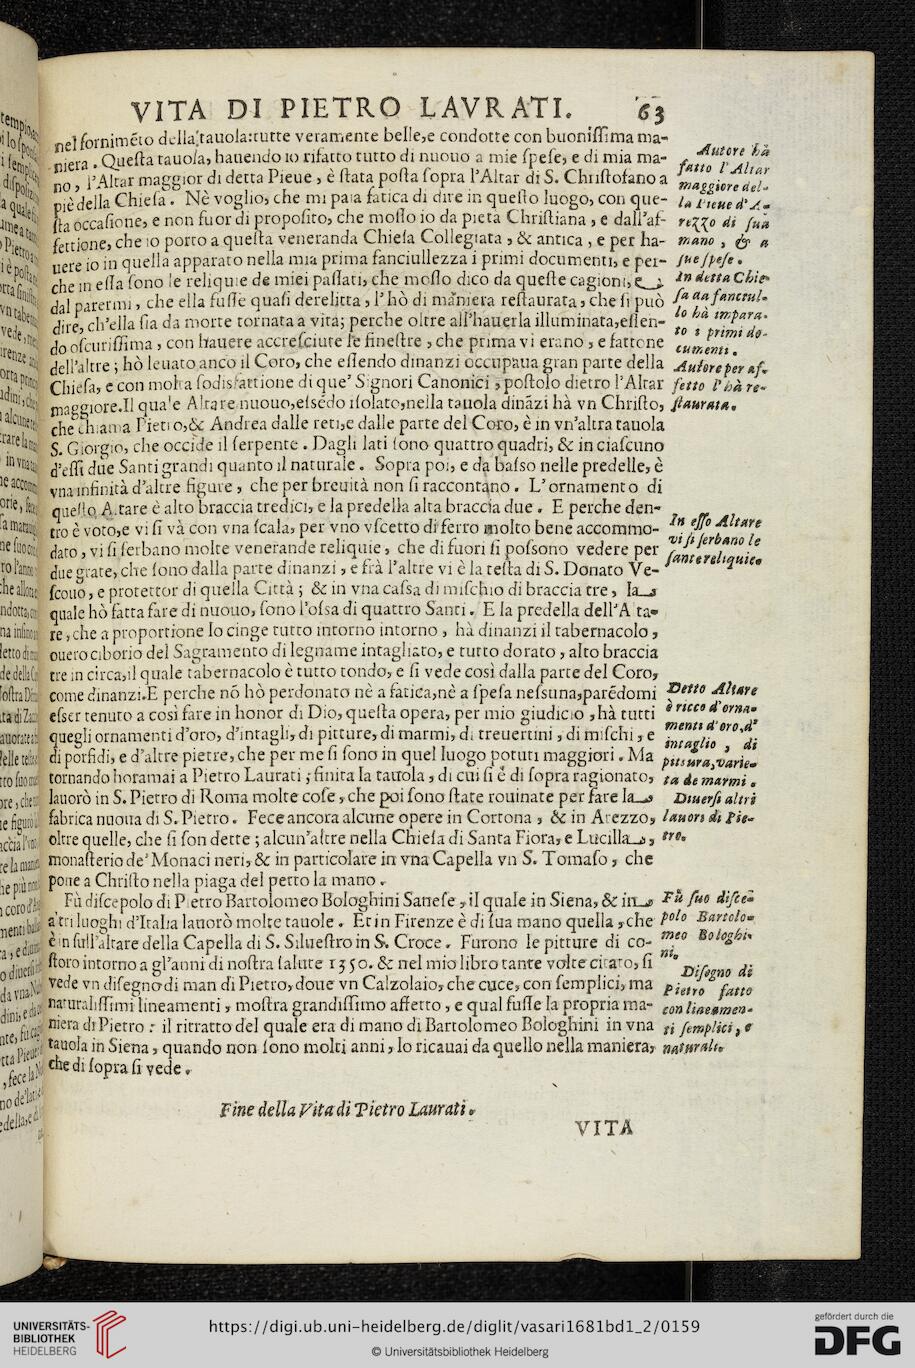 VITA DI PIETRO LAVRATI. 63
nel fornimẽto della tauola: tutte veramente belle, e condotte con buonissima ma-
niera. Questa tauola, hauendo io rifatto tutto di nuouo a mie spese, e di mia ma-
no, l'Altar maggior di detta Pieue, è stata posta sopra l'Altar di S. Christofano a
piè della Chiesa. Nè voglio, che mi paia fatica di dire in questo luogo, con que-
sta occasione, e non fuor di proposito, che mosso io da pietà Christiana, e dall'af-
fettione, che io porto a questa veneranda Chiesa Collegiata, & antica, e per ha-
uere io in quella apparato nella mia prima fanciullezza i primi documenti, e per-
che in essa sono le reliquie de miei passati, che mosso dico da queste cagioni, e
dal parermi, che ella fusse quasi derelitta, l'hò di maniera restaurata, che si può
dire, ch'ella sia da morte tornata a vita; perche oltre all'hauerla illuminata, essen-
do oscurissima, con hauere accresciute le finestre, che prima vi erano, e fattone
dell'altre; hò leuato anco il Coro, che essendo dinanzi occupaua gran parte della
Chiesa, e con molta sodisfattione di que' Signori Canonici, postolo dietro l'Altar
maggiore. Il quale Altare nuouo, essẽdo isolato, nella tauola dinãzi hà vn Christo,
che chiama Pietro, & Andrea dalle reti, e dalle parte del Coro, è in vn'altra tauola
S. Giorgio, che occide il serpente. Dagli lati sono quattro quadri, & in ciascuno
d'essi due Santi grandi quanto il naturale. Sopra poi, e da basso nelle predelle, è
vna infinità d'altre figure, che per breuità non si raccontano. L'ornamento di
questo Altare è alto braccia tredici, e la predella alta braccia due. E perche den-
tro è voto, e vi si và con vna scala, per vno vscetto di ferro molto bene accommo-
dato, vi si serbano molte venerande reliquie, che di fuori si possono vedere per
due grate, che sono dalla parte dinanzi, e frà l'altre vi è la testa di S. Donato Ve-
scouo, e protettor di quella Città; & in vna cassa di mischio di braccia tre, la
quale hò fatta fare di nuouo, sono l'ossa di quattro Santi. E la predella dell'Alta-
re, che a proportione lo cinge tutto intorno intorno, hà dinanzi il tabernacolo,
ouero ciborio del Sagramento di legname intagliato, e tutto dorato, alto braccia
tre in circa, il quale tabernacolo è tutto tondo, e si vede così dalla parte del Coro,
come dinanzi. E perche nõ hò perdonato nè a fatica, nè a spesa nessuna, parẽdomi
esser tenuto a così fare in honor di Dio, questa opera, per mio giudicio, hà tutti
quegli ornamenti d'oro, d'intagli, di pitture, di marmi, di treuertini, di mischi, e
di porfidi, e d'altre pietre, che per me si sono in quel luogo potuti maggiori. Ma
tornando horamai a Pietro Laurati; finita la tauola, di cui si è di sopra ragionato,
lauorò in S. Pietro di Roma molte cose, che poi sono state rouinate per fare la
fabrica nuoua di S. Pietro. Fece ancora alcune opere in Cortona, & in Arezzo,
oltre quelle, che si son dette; alcun'altre nella Chiesa di Santa Fiora, e Lucilla,
monasterio de' Monaci neri, & in particolare in vna Capella vn S. Tomaso, che
pone a Christo nella piaga del petto la mano.
Fù discepolo di Pietro Bartolomeo Bologhini Sanese, il quale in Siena, & in
altri luoghi d'Italia lauorò molte tauole. Et in Firenze è di sua mano quella, che
è in sull'altare della Capella di S. Siluestro in S. Croce. Furono le pitture di co-
storo intorno a gl'anni di nostra salute 1350. & nel mio libro tante volte citato, si
vede vn disegno di man di Pietro, doue vn Calzolaio, che cuce, con semplici, ma
naturalissimi lineamenti, mostra grandissimo affetto, e qual fusse la propria ma-
niera di Pietro: il ritratto del quale era di mano di Bartolomeo Bologhini in vna
tauola in Siena, quando non sono molti anni, lo ricauai da quello nella maniera,
che di sopra si vede.
Fine della Vita di Pietro Laurati.
VITA
Autore hà
fatto l'Altar
maggiore del-
la Pieue d'A-
rezzo di sua
mano, & a
sue spese.
In detta Chie-
sa da fanciul-
lo hà impara-
to i primi do-
cumenti.
Autore per af-
fetto l'hà re-
staurata.
In esso Altare
vi si serbano le
sante reliquie.
Detto Altare
è ricco d'orna-
menti d'oro, d'
intaglio, di
pittura, varie-
ta de marmi.
Diuersi altri
lauori di Pie-
tro.
Fù suo disce-
polo Bartolo-
meo Bologhi-
ni.
Disegno di
Pietro fatto
con lineamen-
ti semplici, e
naturali.
UNIVERSITÄTS-
BIBLIOTHEK
HEIDELBERG
https://digi.ub.uni-heidelberg.de/diglit/vasari1681bd1_2/0159
© Universitätsbibliothek Heidelberg
gefördert durch die
DFG